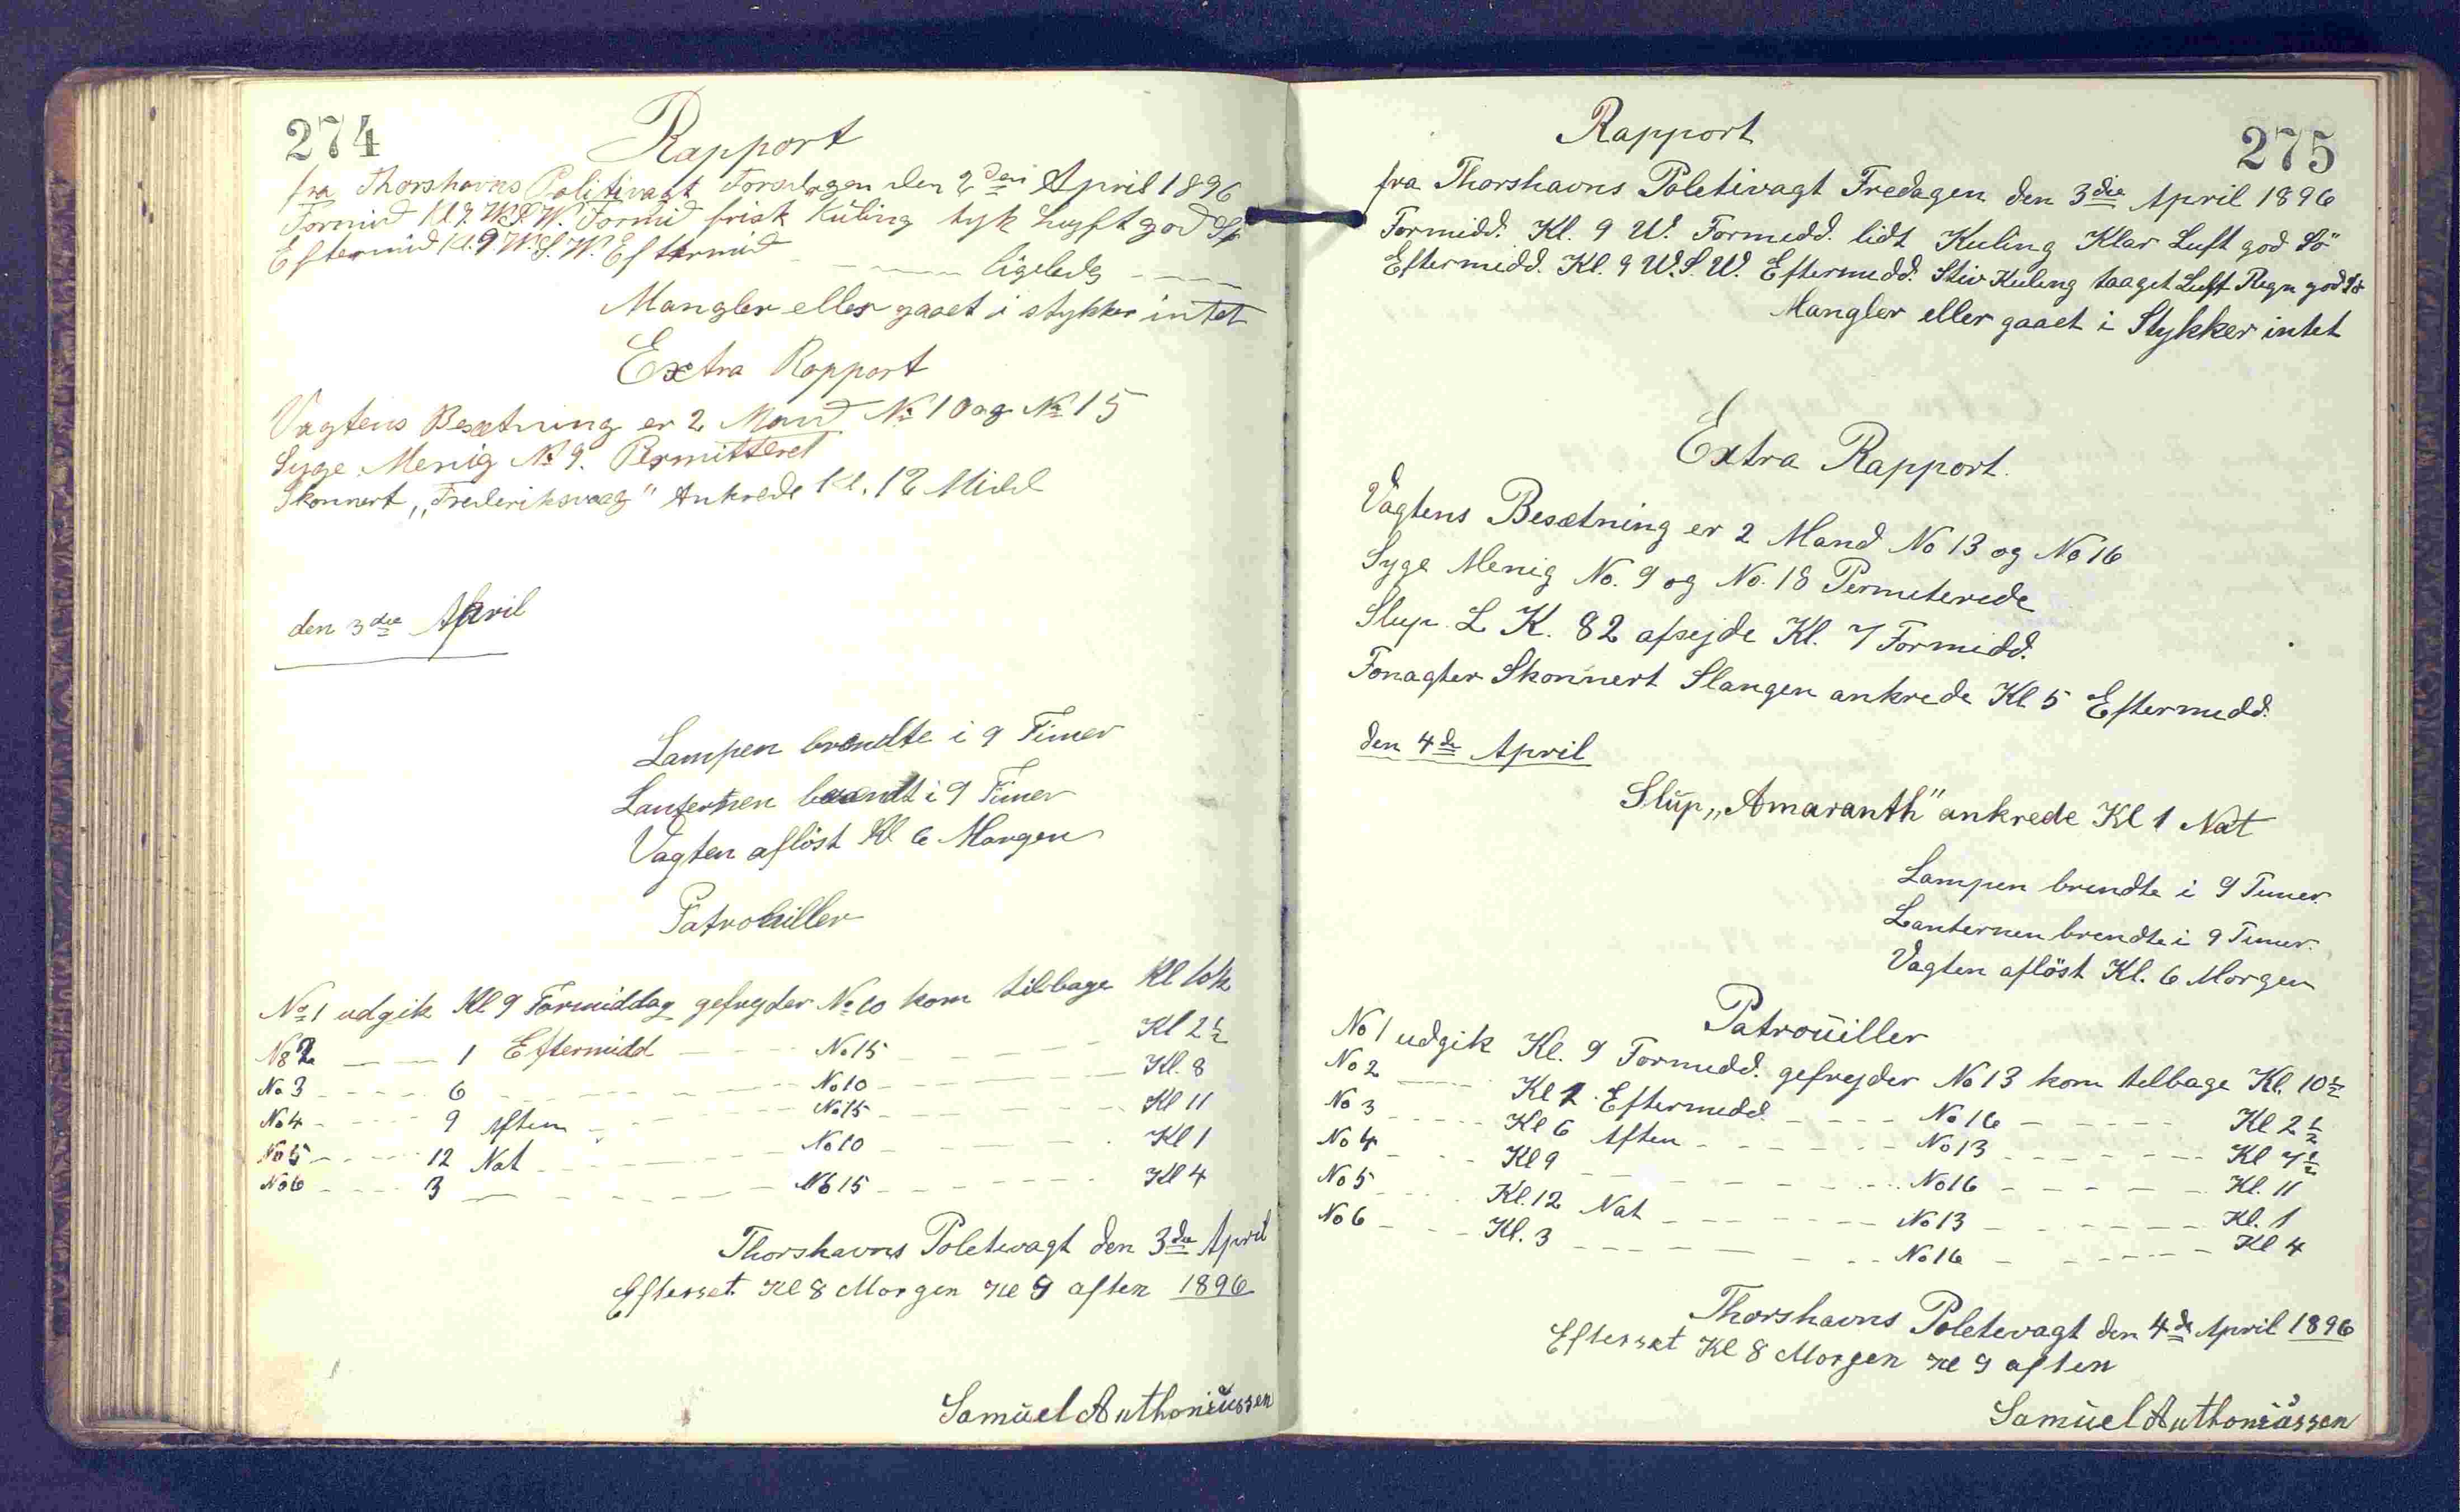 274
Rapport
fra Thorshavns Politivagt Torsdagen den 2den April 1896
Formid Kl 9. W.S.W. Formid frisk Kuling tyk Luyft god Sø
Eftermid Kl. 9 W.S.W. Eftermid — ligeleds —
Mangler eller gaaet i stykker intet
Extra Rapport
Vagtens Besætning er 2 Mand No 10 og No 15
Syge Menig No 9. Permitteret
Skonnert „Frederiksvaag" Ankrede Kl. 12 Midd
den 3die April
Lampen brændte i 9 Timer
Lanternen brændt i 9 Timer
Vagten aflöst Kl 6 Morgen
Patrouiller
No 1 udgik Kl 9 Formiddag gefreyder No 10 kom tilbage Kl 10½
No 2 — 1 Eftermidd — No 15 — Kl 2½
No 3 — 6 — No 10 — Kl. 8
No 4 — 9 Aften — No 15 — Kl 11
No 5 — 12 Nat — No 10 — Kl 1
No 6 — 3 — No 15 — Kl 4
Thorshavns Poletivagt den 3die April
Efterset Kl 8 Morgen Kl 9 aften 1896
Samuel Anthoniussen
275
Rapport
fra Thorshavns Poletivagt Fredagen den 3die April 1896
Formidd. Kl. 9 W. Formidd. lidt Kuling Klar Luft god Sö
Eftermidd. Kl. 9 W.S.W. Eftermidd. Stiv Kuling taaget Luft Regn god Sö
Mangler eller gaaet i Stykker intet
Extra Rapport.
Vagtens Besætning er 2 Mand No 13 og No 16
Syge Menig No. 9 og No. 18 Permeterede
Slup L K. 82 afsejde Kl. 7 Formidd.
Fonagter Skonnert Slangen ankrede Kl 5 Eftermidd.
den 4de April
Slup „Amaranth" ankrede Kl 1 Nat
Lampen brendte i 9 Timer.
Lanternen brendte i 9 Timer.
Vagten aflöst Kl. 6 Morgen
Patrouiller
No 1 udgik Kl. 9 Formidd. gefrejder No 13 kom telbage Kl. 10½
No 2 — Kl 1 Eftermidd. — No 16 — Kl 2½
No 3 — Kl 6 Aften — No 13 — Kl 7½
No 4 — Kl 9 — No 16 — Kl. 11
No 5 — Kl. 12 Nat — No 13 — Kl. 1
No 6 — Kl. 3 — No 16 — Kl 4
Thorshavns Poletevagt den 4de April 1896
Efterset Kl 8 Morgen Kl 9 aften
Samuel Anthoniussen